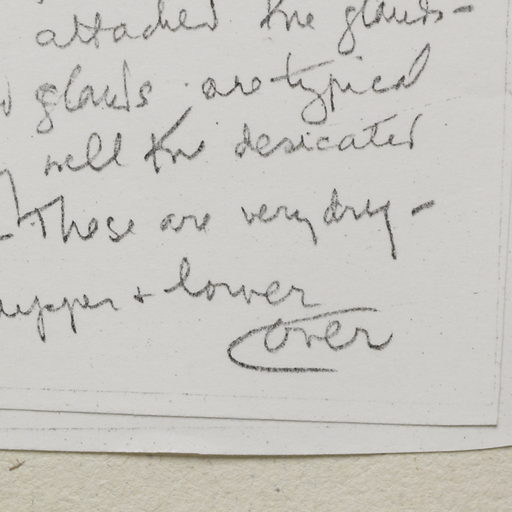 attached the glands-
glands are typical
well the desicated
These are very dry-
upper + lower
over